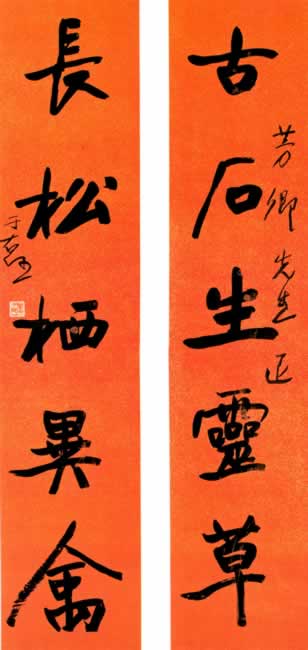 芳卿先生正
古石生靈草
長松栖異禽
于右任